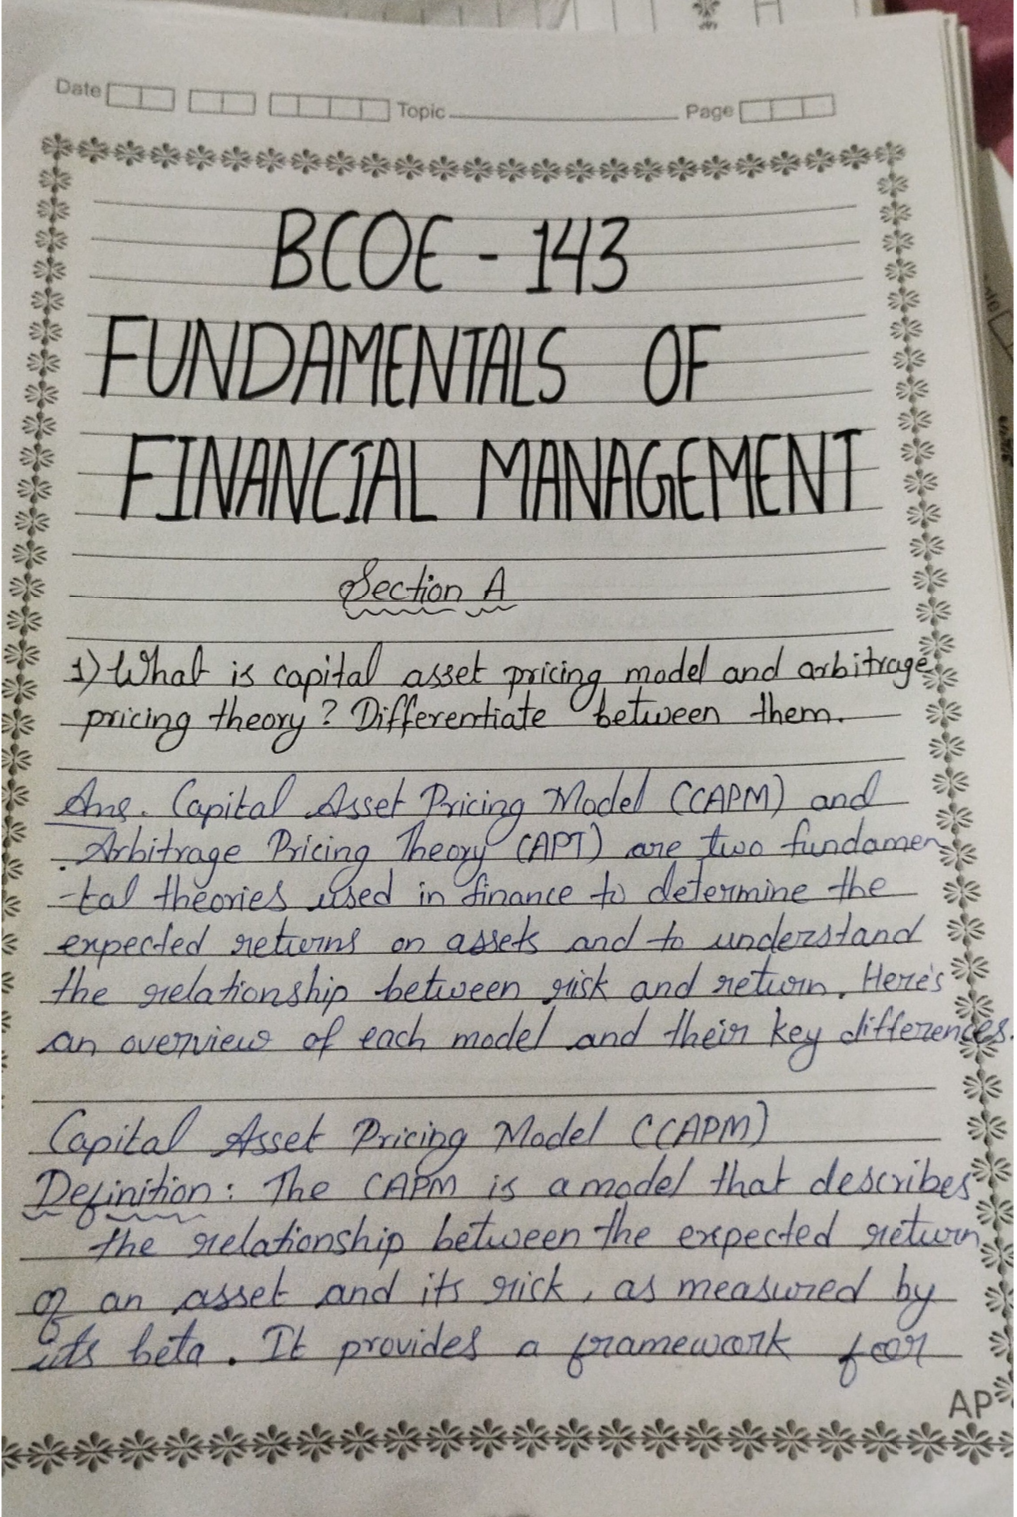 Date Topic Page
BCOE - 143
FUNDAMENTALS OF
FINANCIAL MANAGEMENT
Section A
1) What is capital asset pricing model and arbitrage
pricing theory? Differentiate between them.
Ans. Capital Asset Pricing Model (CAPM) and
Arbitrage Pricing Theory (APT) are two fundamen
-tal theories used in finance to determine the
expected returns on assets and to understand
the relationship between risk and return. Here's
an overview of each model and their key differences.
Capital Asset Pricing Model (CAPM)
Definition: The CAPM is a model that describes
the relationship between the expected return
of an asset and its risk, as measured by
its beta. It provides a framework for
AP